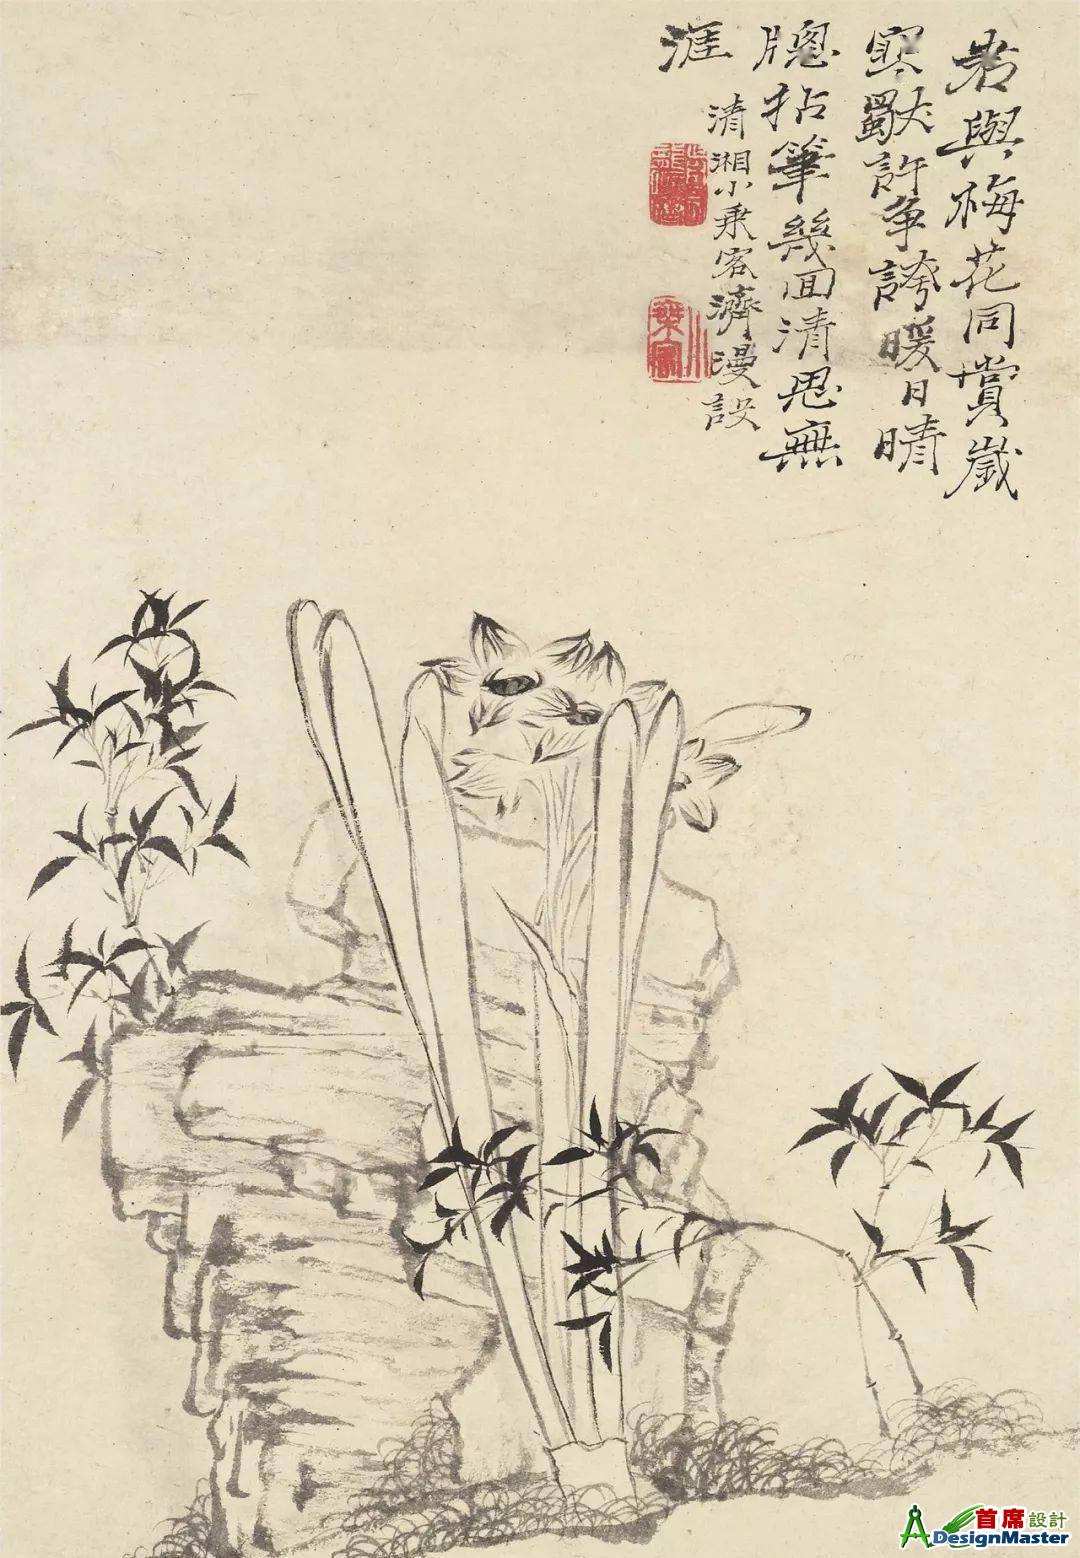 君與梅花同賞歲
寒獨許争誇暖日晴
牕拈筆幾回清思無
涯
清湘小乘客濟漫設
小乘客
首席設計
DesignMaster